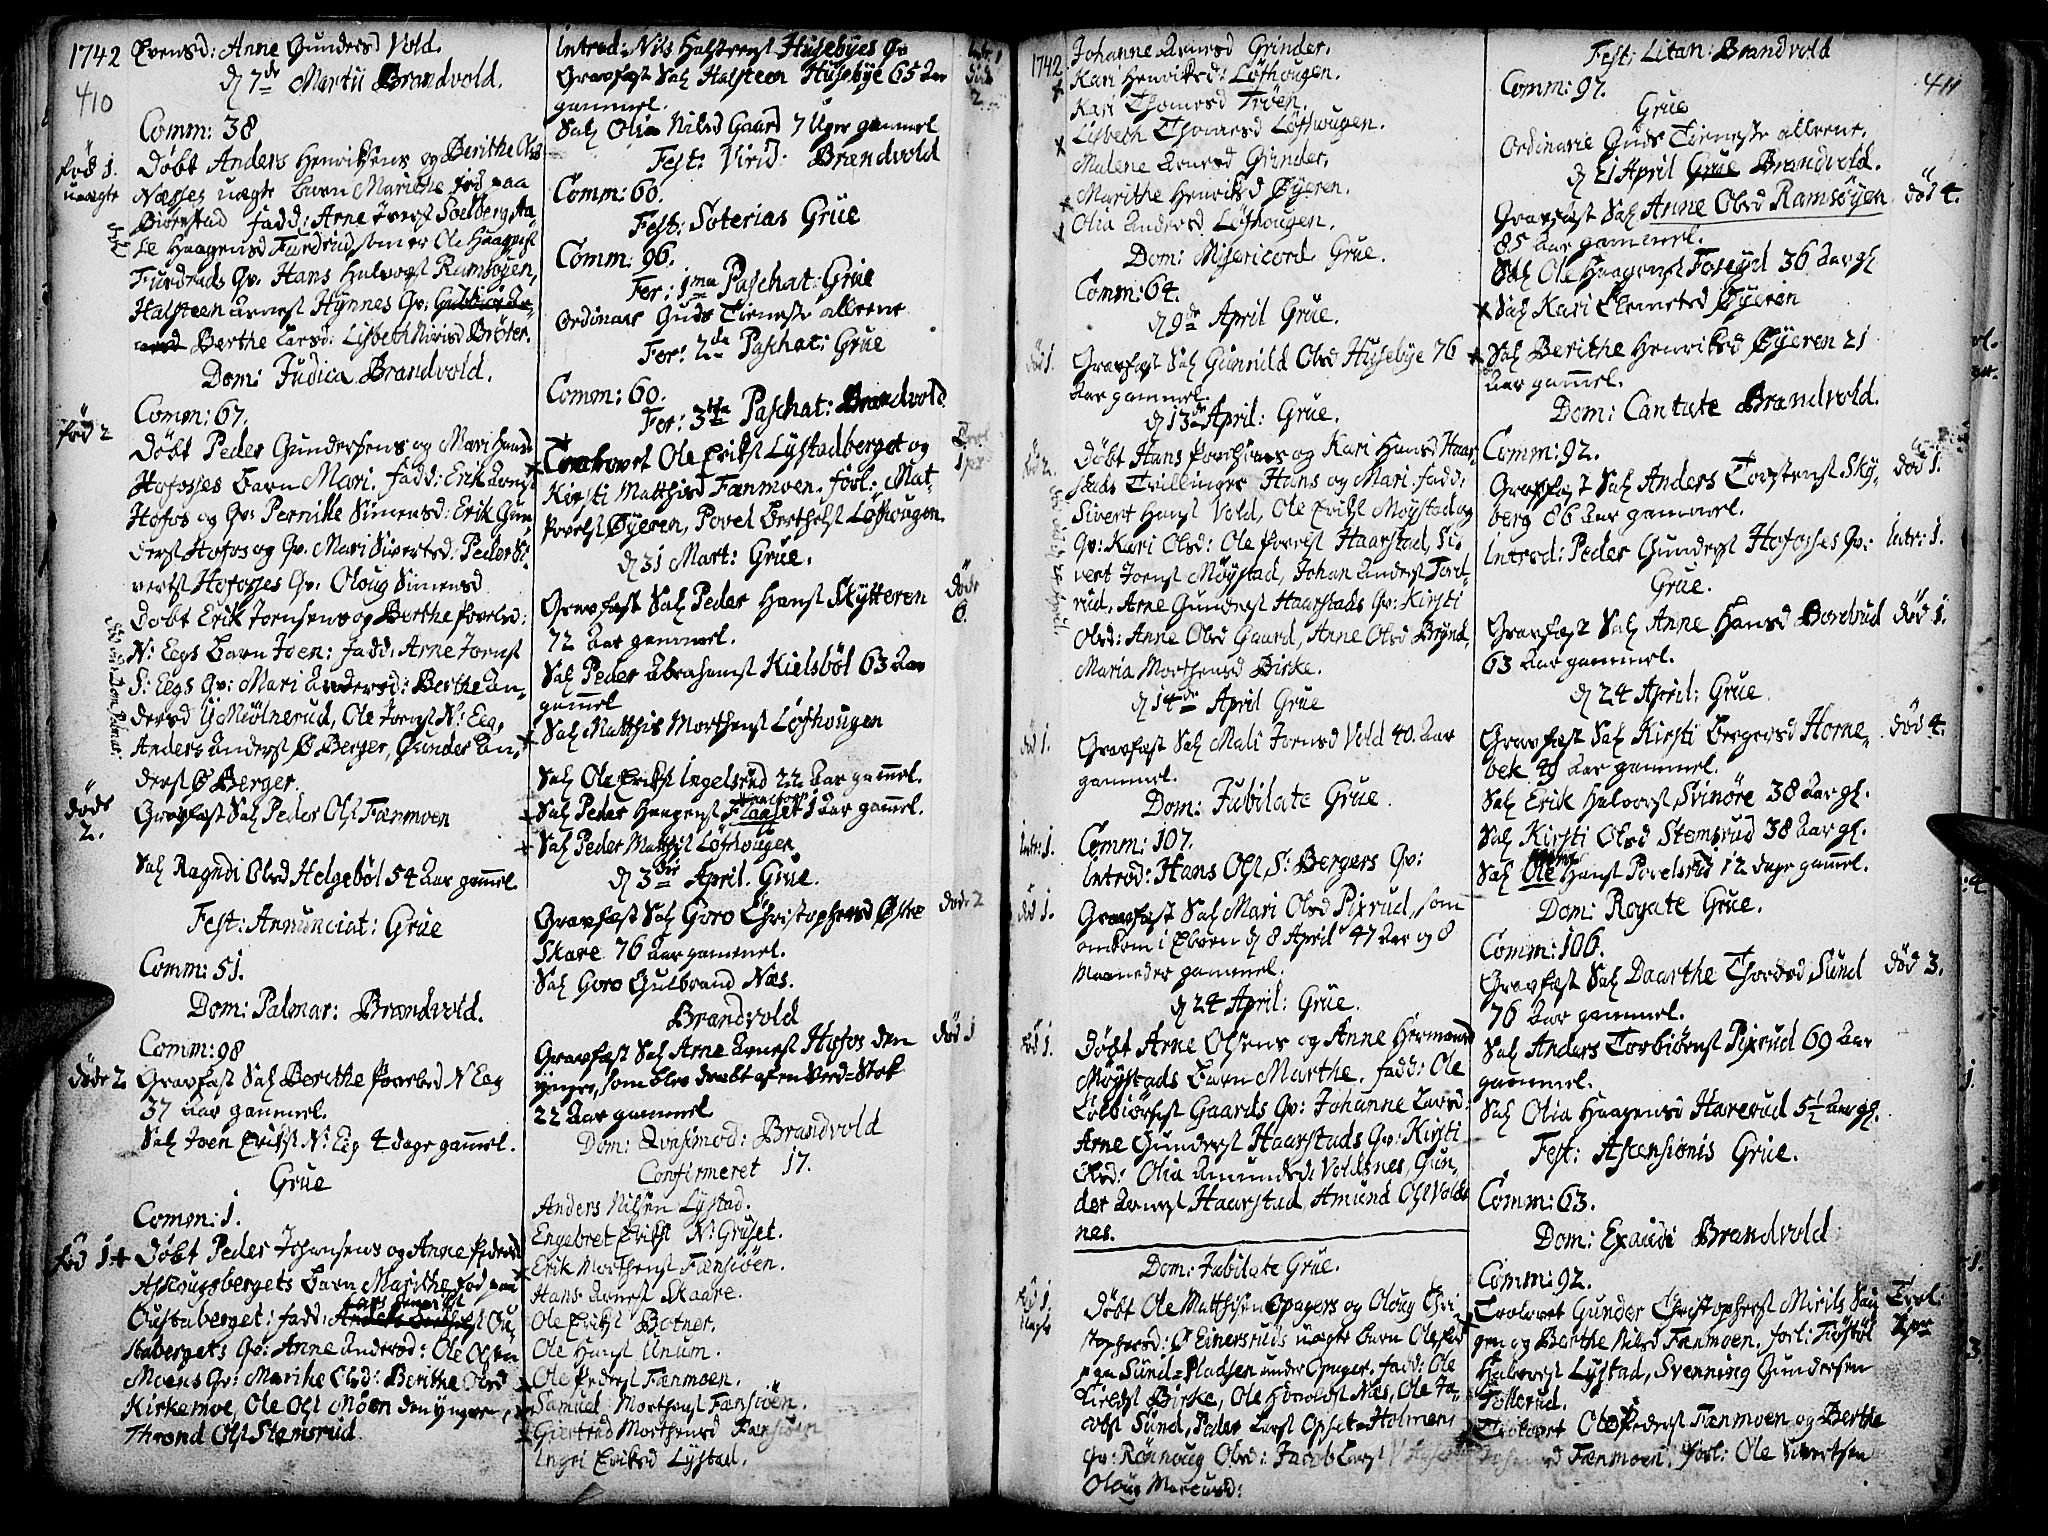 1742
410
Evensd: Anne Gundersd Vold.
d 7de Martii Brandvold.
Comm: 38
død 1.
uægte
Døbt Anders Henriksens og Berithe Olsd
Næsses uægte barn Marithe fød paa
Biørstad fadd: Arne Iversl Solberg, Aa
le Haagensd Furdrud som er Ole Haagensl
Furdruds Qv. Hans Halvorsl Ramsøyen,
Halsteen Arnesl Hynnes Qv:
Berthe Larsd: Lisbeth Nirisd Brøter.
Dom: Judica Brandvold.
Comm: 67.
fød 2
Døbt Peder Gundersens og Mari Hansd
Hofosses barn Mari. fadd: Erik Arnesl
Hofos og Qv: Pernille Simensd: Erik Gun
dersl Hofos og Qv. Mari Sivertsd: Peder Si
vertsl Hofosses Qv. Oloug Simensd
Døbt Erik Joensens og Berthe Povelsd:
N: Eegs barn Joen: fadd: Arne Joensl
S: Eegs Qv: Mari Andersd: Berthe An
dersd Y Miølnerud, Ole Joensl N: Eeg,
Anders Andersl Ø Berger, Gunder An
dersl Ø Berger.
døde
2.
Gravfæst Sal Peder Olsl Fænmoen
Sal Ragndi Olsd Helgebøl 54 Aar gamel.
Fest: Annunciat: Grue
Comm: 51.
Dom: Palmar: Brandvold.
Comm: 98
døde 2
Gravfæst Sal Berithe Povelsd N Eeg
37 Aar gammel.
Sal Joen Eriksl N: Eeg 4 dage gammel.
Grue
Comm: 1.
fød 1
Døbt Peder Johansens og Anne Pedersd
Askougsbergets barn Marithe fød paa
Oustaberget: fadd: Ou
stabergets Qv: Anne Andersd: Ole Olsen
Moens Qv: Marthe Olsd: Berithe Olsd
Kirkemoe, Ole Olsl Moen den yngre,
Thrond Olsl Stemsrud.
Introd: Nils Halsteensl Husebyes Qv
Gravfæst Sal Halsteen Husebye 65 Aar
gammel.
Sal Olia Nilsd Gaard 7 Uger gammel
Fest: Virid: Brandvold
Comm: 60.
Fest: Soterias Grue
Comm: 96.
Fer: 1ma Paschat: Grue
Ordinair Guds Tieneste alleene
Fer: 2da Paschat: Grue
Comm: 60.
Fer: 3tia Paschat: Brandvold
Trolovet Ole Eriksl Lystadberget og
Kirsti Matthisd Fænmoen. forl: Mat
Povelsl Øyeren, Povel Berthelsl Løfhougen.
d 31 Mart: Grue.
Gravfæst Sal Peder Hansl Skytteren
døde
6.
72 Aar gammel.
Sal Peder Abrahamsl Kielsbøl 63 Aar
gammel
Sal Matthis Morthensl Løfhougen
Sal Ole Eriksl Ingelsrud 22 Aar gammel.
Sal Peder Haagensl Flaaset 1 Aar gammel.
Sal Peder Matthisl Løfhougen
d 3die April. Grue.
Gravfæst Sal Goro Christophersd Øste
døde 2
Skare 76 Aar gammel.
Sal Goro Gulbrand Næs.
Brandvold
Gravfæst Sal Arne Arnesl Hofos den
død 1
yngre, som blev dræbt af en Ved=Stok
22 Aar gammel
Dom: Qvasimod: Brandvold
Confirmeret 17.
Anders Nilsen Lystad.
Engebret Eriksl N: Gruset.
Erik Morthensl Fænsiøen.
Hans Arnesl Skaare.
Ole Eriksl Botner.
Ole Hansl Unum.
Ole Pedersl Fænmoen.
Samuel Morthensl Fænsiøen.
Giertrud Morthensd Fænsiøen
Ingri Eriksd Lystad.
1742
Johanne Arnesd Grinder.
Kari Henriksd: Løfhougen.
Kari Thomesd Trøen.
Lisbeth Thomesd Løfhougen.
Malene Arnesd Grinder.
Marithe Henriksd Øyeren.
Olia Andersd Løfhougen.
Dom: Misericord Grue.
Comm: 64.
d 9de April Grue.
død 1.
Gravfæst Sal Gunnild Olsd Husebye 76
Aar gammel.
d 13de April: Grue.
fød 2.
Døbt Hans Povelsens og Kari Hansd Haar
stads Tvillinger Hans og Mari. fadd:
Sivert Hansl Vold, Ole Eriksl Møystad og
Qv: Kari Olsd: Ole Povelsl Haarstad, Si
vert Joensl Møystad, Johan Andersl Furd
rud, Arne Gundersl Haarstads Qv: Kirsti
Olsd: Anne Olsd Gaard, Anne Olsd Brynd,
Maria Morthensd Birke.
d 14de April Grue
død 1.
Gravfæst Sal Mali Joensd Vold 40. Aar
gammel.
Dom: Jubilate Grue.
Comm: 107.
Intr: 1.
Introd: Hans Olsl S: Bergers Qv:
død 1.
Gravfæst Sal Mari Olsd Pixrud, som
omkom i Elven d 8 April 47 Aar og 8
Maaneder gammel.
d 24 April: Grue.
fød 1.
Døbt Arne Olsens og Anne Hermansd
Møystads barn Marthe. fadd: Ole
Torbiørnsl Gaards Qv: Johanne Larsd:
Arne Gundersl Haarstads Qv: Kirsti
Olsd: Olia Amundsd Voldsnes, Gun
der Arnesl Haarstad, Amund Olsl Volds
nes.
Dom: Jubilate Grue.
fød 1.
Uægte
Døbt Ole Matthisen Opagers og Oloug Chri
stophersd: Ø Einersruds uægte barn Ole fød
paa Sund=Pladsen under Opager. fadd: Ole
Birke, Ole Næs, Ole Ja
cobsl Sund, Peder Larsl Opset=Holmens
Qv: Rønnoug Olsd: Jacob Larsl
Oloug Marcusd:
Fest: Litan: Brandvold
411
Comm: 97.
Grue
Ordinarie Guds Tieneste alleene.
d 21 April Grue Brandvold.
Gravfæst Sal Anne Olsd Ramsøyen
død 4.
85 Aar gammel.
Sal Ole Haagensl Foseyd 36 Aar gl.
Sal Kari Clemetsd Øyeren
Sal Berithe Henriksd Øyeren 21
Aar gammel.
Dom: Cantate Brandvold.
Comm: 92.
Gravfæst Sal Anders Torstensl Sky
død 1.
berg 86 Aar gammel.
Introd: Peder Gundersl Hofosses Qv:
Intr: 1.
Grue.
Gravfæst Sal Anne Hansd Bordrud
død 1.
63 Aar gammel.
d 24 April: Grue.
Gravfæst Sal Kirsti Bergersd Horne
død 4.
bek 49 Aar gammel.
Sal Erik Halvorsl Svinøre 38 Aar gl.
Sal Kirsti Olsd Stemsrud 38 Aar gl.
Sal Ole Hansl Povelsrud 12 dage gammel.
Dom: Rogate Grue.
Comm: 106.
Gravfæst Sal Daarthe Thordsd Sund
død 3.
76 Aar gammel.
Sal Anders Torbiørnsl Pixrud 69 Aar
gammel.
Sal Olia Haagensd Harerud 5½ Aar gl.
Fest: Ascensionis Grue.
Comm: 63.
Dom: Exaudi Brandvold
Comm: 92.
Trolovet Gunder Christophersl Mirils Sau
Trol:
2 par
gen og Berthe Nilsd Fænmoen. forl: Tiøstøl
Halvorsl Lystad, Svenning Gundersen
Tollerud.
Trolovet Ole Pedersl Fænmoen og Berthe
Fænmoen. forl: Ole Sivertsen